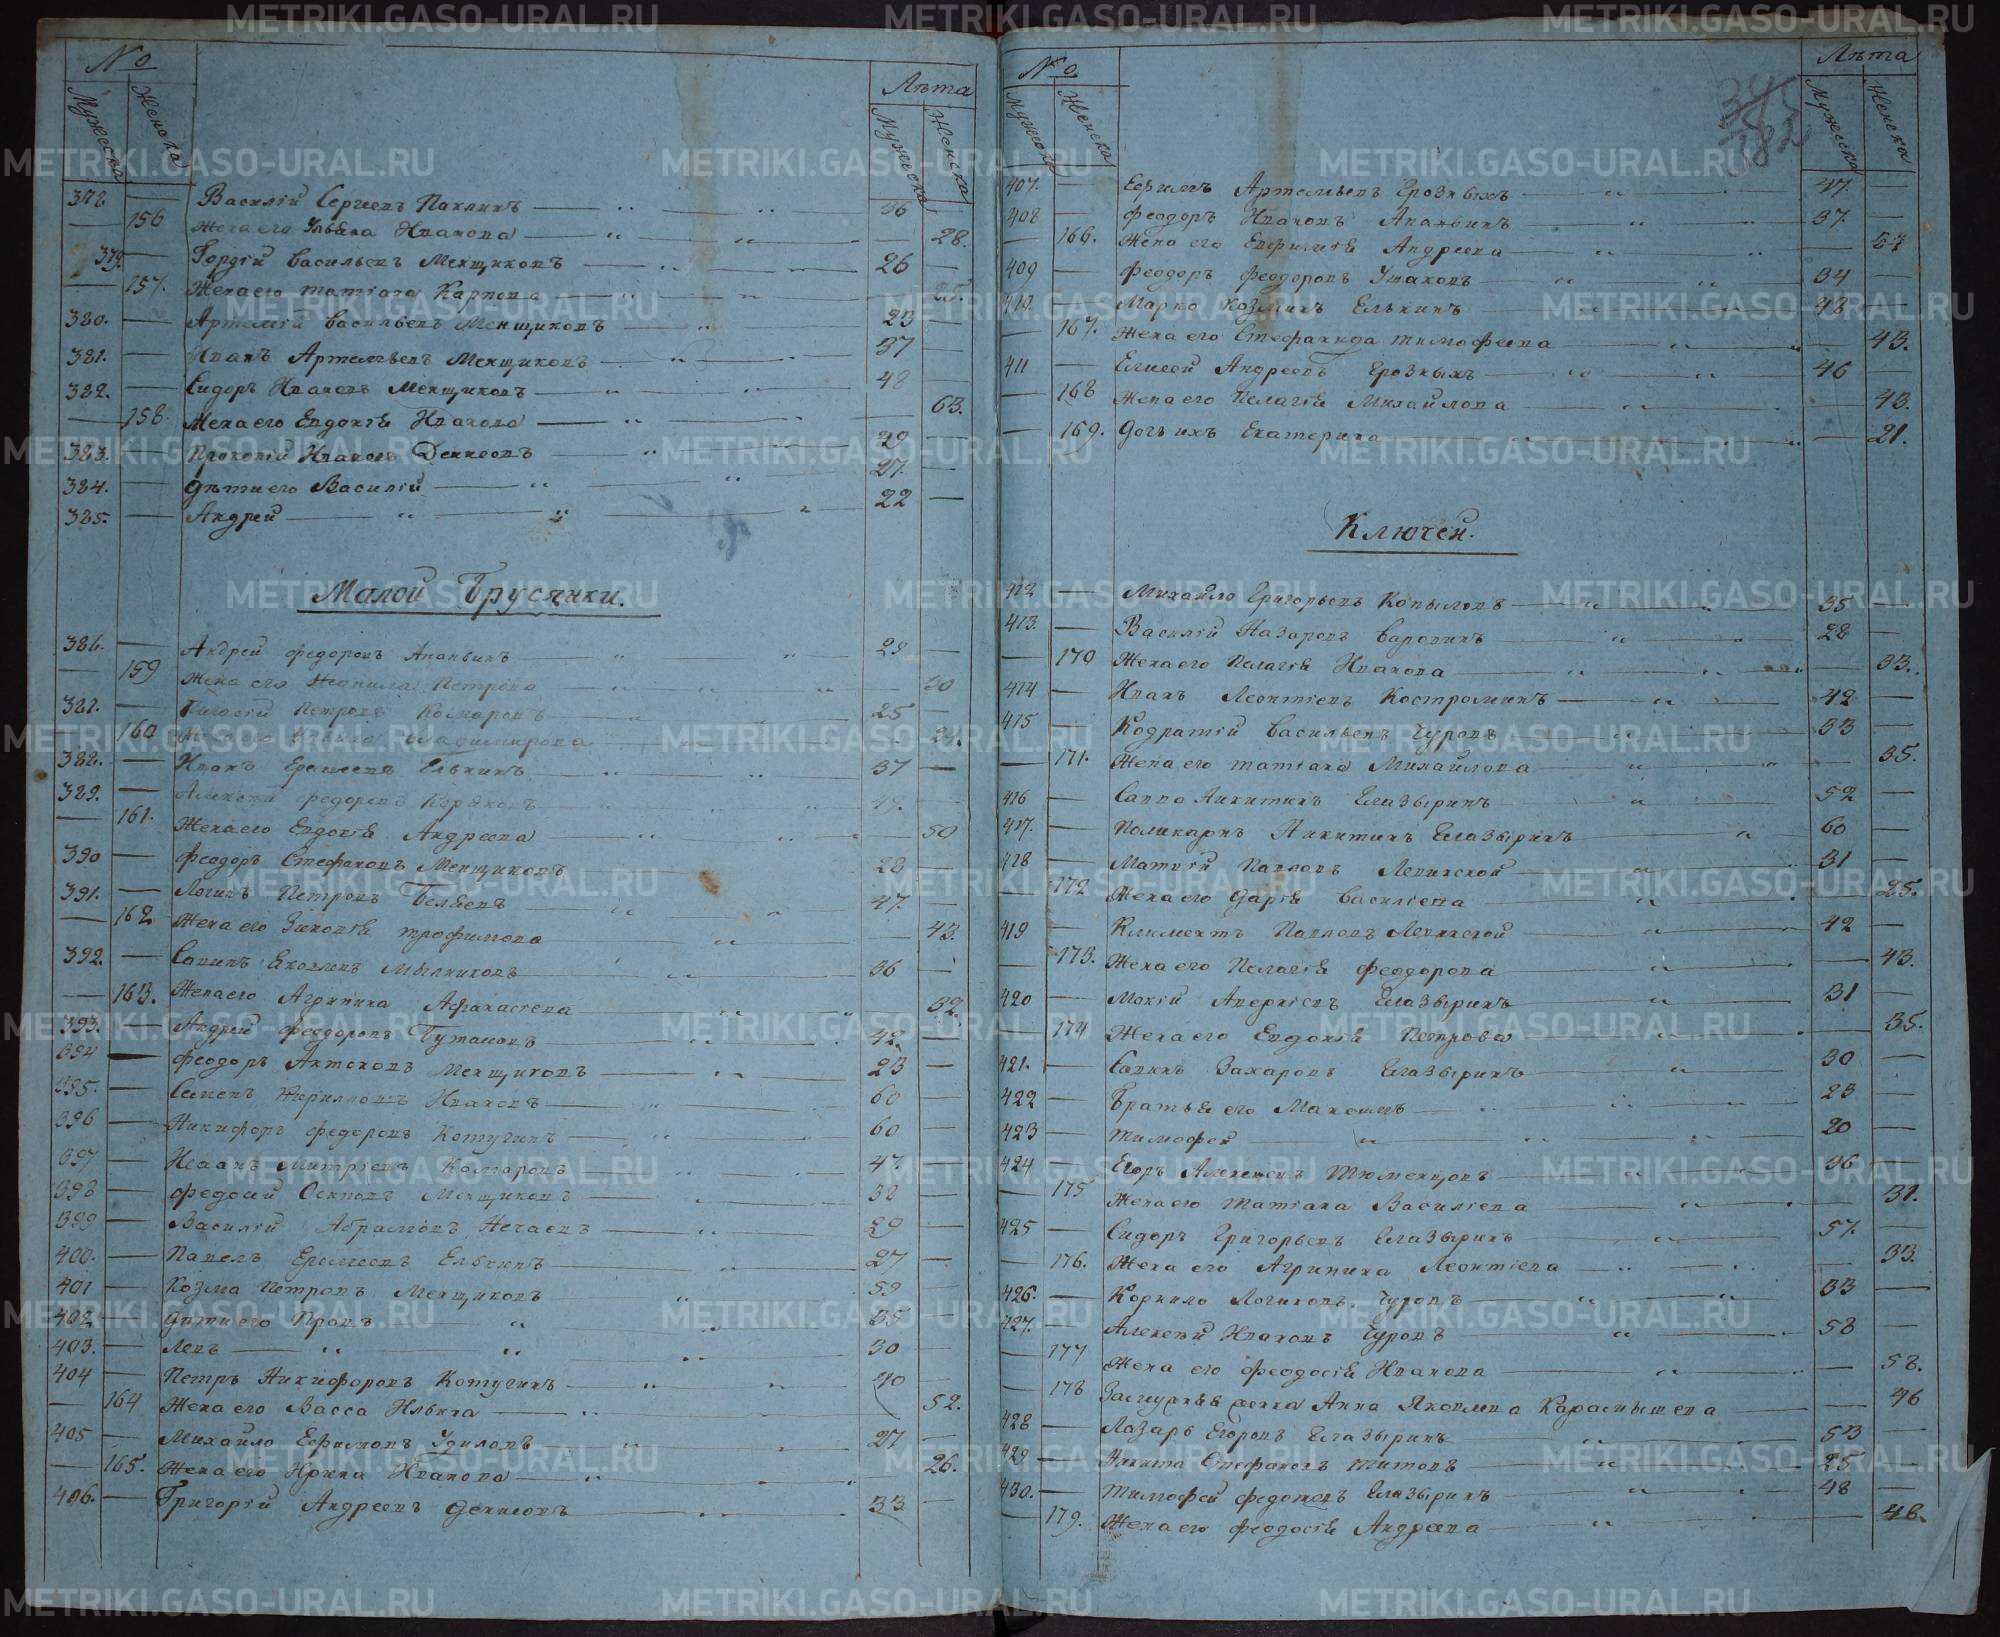 №
Мужеска
Женска
Лѣта
Мужеска
Женска
378 Василій Сергеевъ Павлинъ 36
156 Жена его Ульяна Иванова 28.
379. Гордѣй Васильевъ Менщиковъ 26
157. Жена его Татіана Карпова 25.
380. Артемій Васильевъ Менщиковъ 23
381. Иванъ Артемьевъ Менщиковъ 37
382. Сидоръ Ивановъ Менщиковъ 48
158. Жена его Евдокія Иванова 63.
383. Прокопій Ивановъ Денисовъ 29
384. Дѣти его Василій 27.
385. Андрей 22
Малой Брусянки.
386. Андрей Федоровъ Ананьинъ 29
159 Жена его Неонила Петрова 30
387. Петровъ Комаровъ 25
160 Жена его Владимирова
388. Иванъ Еремеевъ Елькинъ 37
389. Алексѣй Федоровъ Коряковъ 47.
161. Жена его Евдокія Андреева 50
390 Феодоръ Стефановъ Менщиковъ 28
391. Логинъ Петровъ Беляевъ 47.
162 Жена его Зиновія Трофимова 43.
392. Савинъ Яковлевъ Мыльниковъ 36
163. Жена его Агрипина Афанасіева 39.
393. Андрей Феодоровъ Бутаковъ 42
394 Феодоръ Антоновъ Менщиковъ 23
395. Семенъ Кирилловъ Ивановъ 60
396 Никифоръ Федоровъ Котугинъ 60
397 Иванъ Митріевъ Комаровъ 47.
398 Федосій Осиповъ Менщиковъ 38
399 Василій Абрамовъ Нечаевъ 29
400. Павелъ Еремеевъ Елькинъ 27
401 Козма Петровъ Менщиковъ 59
402 Дѣти его Провъ 35
403. Левъ 30
404 Петръ Никифоровъ Котугинъ 40
164 Жена его Васса Ильина 52.
405 Михайло Ефимовъ Удиловъ 27
165. Жена его Ирина Иванова 26.
406. Григорій Андреевъ Денисовъ 33
№
Мужеска
Женска
Лѣта
Мужеска
Женска
382
407. Ефимъ Артемьевъ Грозныхъ 47.
408 Феодоръ Ивановъ Ананьинъ 37.
166. Жена его Евфимія Андреева 57
409 Феодоръ Феодоровъ Ушаковъ 34
410. Марко Козминъ Елькинъ 48
167. Жена его Стефанида Тимофеева 43.
411 Елисей Андреевъ Грозныхъ 46
168 Жена его Пелагія Михайлова 43.
169. Дочь ихъ Екатерина 21.
Ключей.
412 Михайло Григорьевъ Копыловъ 35
413. Василій Назаровъ Варовинъ 28
170 Жена его Пелагія Иванова 33.
414 Иванъ Леонтіевъ Костроминъ 42
415 Кодратій Васильевъ Чуровъ 33
171. Жена его Татіана Михайлова 35.
416 Савва Никитинъ Глазыринъ 52
417. Поликарпъ Никитинъ Глазыринъ 60
418 Матвій Павловъ Левинской 31
172 Жена его Дарія Василіева 25.
419 Климентъ Павловъ Левинской 42
173. Жена его Пелагія Феодорова 43.
420 Мокій Аверкіевъ Глазыринъ 31
174 Жена его Евдокія Петрова 35.
421. Савинъ Захаровъ Глазыринъ 30
422 Братья его Максимъ 23
423 Тимофей 20
424 Егоръ Алексѣевъ Тюменцовъ 36
175 Жена его Татіана Василіева 31.
425 Сидоръ Григорьевъ Глазыринъ 57.
176. Жена его Агрипина Леонтіева 33.
426. Корнило Логиновъ Чуровъ 33
427. Алексѣй Ивановъ Чуровъ 58
177 Жена его Феодосія Иванова 58.
178 Анна Яковлева Карамышева 46
428 Лазарь Егоровъ Глазыринъ 53
429 Никита Стефановъ Титовъ 25
430. Тимофей Федотовъ Глазыринъ 48
179. Жена его Феодосія Андреева 48.